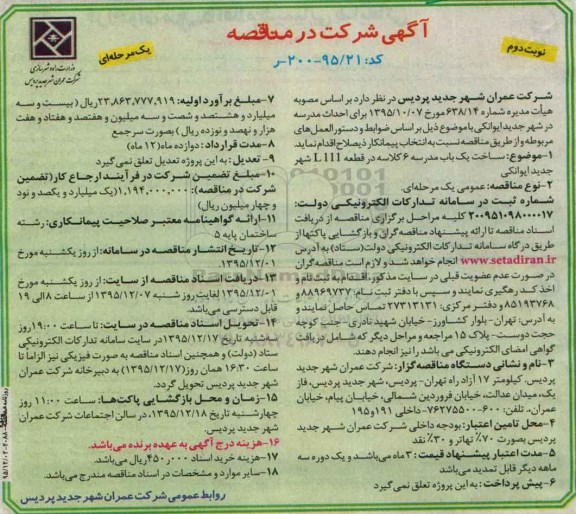 آگهی شرکت در مناقصه
کد: ۹۵/۲۱-۲۰۰-ر
نوبت دوم
یک مرحله‌ای
وزارت راه و شهرسازی
شرکت عمران شهر جدید پردیس
شرکت عمران شهر جدید پردیس در نظر دارد بر اساس مصوبه
هیأت مدیره شماره ۶۳۸/۱۴ مورخ ۱۳۹۵/۱۰/۰۷ برای احداث مدرسه
در شهر جدید ایوانکی با موضوع ذیل بر اساس ضوابط و دستورالعمل‌های
مربوطه و از طریق مناقصه نسبت به انتخاب پیمانکار ذیصلاح اقدام نماید.
۱-موضوع: ساخت یک باب مدرسه ۶ کلاسه در قطعه L111 شهر
جدید ایوانکی
۲-نوع مناقصه: عمومی یک مرحله‌ای.
شماره ثبت در سامانه تدارکات الکترونیکی دولت:
۲۰۰۹۵۱۰۹۸۰۰۰۰۱۷ کلیه مراحل برگزاری مناقصه از دریافت
اسناد مناقصه تا ارائه پیشنهاد مناقصه گران و بازگشایی پاکتها از
طریق درگاه سامانه تدارکات الکترونیکی دولت (ستاد) به آدرس
www.setadiran.ir انجام خواهد شد و لازم است مناقصه گران
در صورت عدم عضویت قبلی در سایت مذکور، اقدام به ثبت نام و
اخذ کد رهگیری نمایند و سپس با دفتر ثبت نام: ۸۸۹۶۹۷۳۷ و
۸۵۱۹۳۷۶۸ و دفتر مرکزی: ۲۷۳۱۳۱۳۱ تماس حاصل نمایند و
به آدرس: تهران- بلوار کشاورز- خیابان شهید نادری- جنب کوچه
حجت دوست- پلاک ۱۵ مراجعه و مراحل دیگر که شامل دریافت
گواهی امضای الکترونیکی می باشد را نیز انجام دهند.
۳-نام و نشانی دستگاه مناقصه‌گزار: شرکت عمران شهر جدید
پردیس. کیلومتر ۱۷ آزاد راه تهران- پردیس، شهر جدید پردیس، فاز
یک، میدان عدالت، خیابان فروردین شمالی، خیابان پیام، خیابان
عمران، تلفن: ۶۰۰-۷۶۲۷۵۵۰۰- داخلی ۱۹۱ و ۱۹۵
۴-محل تامین اعتبار: بودجه داخلی شرکت عمران شهر جدید
پردیس بصورت ۷۰٪ تهاتر و ۳۰٪ نقد
۵-مدت اعتبار پیشنهاد قیمت: ۳ ماه می‌باشد و یک دوره سه
ماهه دیگر قابل تمدید می‌باشد
۶-پیش پرداخت: به این پروژه تعلق نمی‌گیرد
۷-مبلغ برآورد اولیه: ۲۳,۸۶۳,۷۷۷,۹۱۹ ریال (بیست و سه
میلیارد و هشتصد و شصت و سه میلیون و هفتصد و هفتاد و هفت
هزار و نهصد و نوزده ریال) بصورت سرجمع
۸-مدت قرارداد: دوازده ماه (۱۲ ماه)
۹-تعدیل: به این پروژه تعدیل تعلق نمی‌گیرد
۱۰-مبلغ تضمین شرکت در فرآیند ارجاع کار (تضمین
شرکت در مناقصه): ۱,۱۹۴,۰۰۰,۰۰۰ (یک میلیارد و یکصد و نود
و چهار میلیون ریال)
۱۱-ارائه گواهینامه معتبر صلاحیت پیمانکاری: رشته
ساختمان پایه ۵
۱۲-تاریخ انتشار مناقصه در سامانه: از روز یکشنبه مورخ
۱۳۹۵/۱۲/۰۱
۱۳-دریافت اسناد مناقصه از سایت: از روز یکشنبه مورخ
۱۳۹۵/۱۲/۰۱ لغایت روز شنبه ۱۳۹۵/۱۲/۰۷ از ساعت ۸ الی ۱۹
قابل دسترسی می‌باشد.
۱۴-تحویل اسناد مناقصه در سایت: تا ساعت ۱۹:۰۰ روز
سه‌شنبه تاریخ ۱۳۹۵/۱۲/۱۷ در سایت سامانه تدارکات الکترونیکی
ستاد (دولت) و همچنین اسناد مناقصه به صورت فیزیکی نیز الزاما تا
ساعت ۱۶:۳۰ همان روز (۱۳۹۵/۱۲/۱۷) به دبیرخانه شرکت عمران
شهر جدید پردیس تحویل گردد.
۱۵-زمان و محل بازگشایی پاکت‌ها: ساعت ۱۱:۰۰ روز
چهارشنبه تاریخ ۱۳۹۵/۱۲/۱۸، در سالن اجتماعات شرکت عمران
شهر جدید پردیس.
۱۶-هزینه درج آگهی به عهده برنده می‌باشد.
۱۷-هزینه خرید اسناد ۴۵۰,۰۰۰ ریال می‌باشد.
۱۸-سایر موارد و مشخصات در اسناد مناقصه مندرج می‌باشد.
روابط عمومی شرکت عمران شهر جدید پردیس